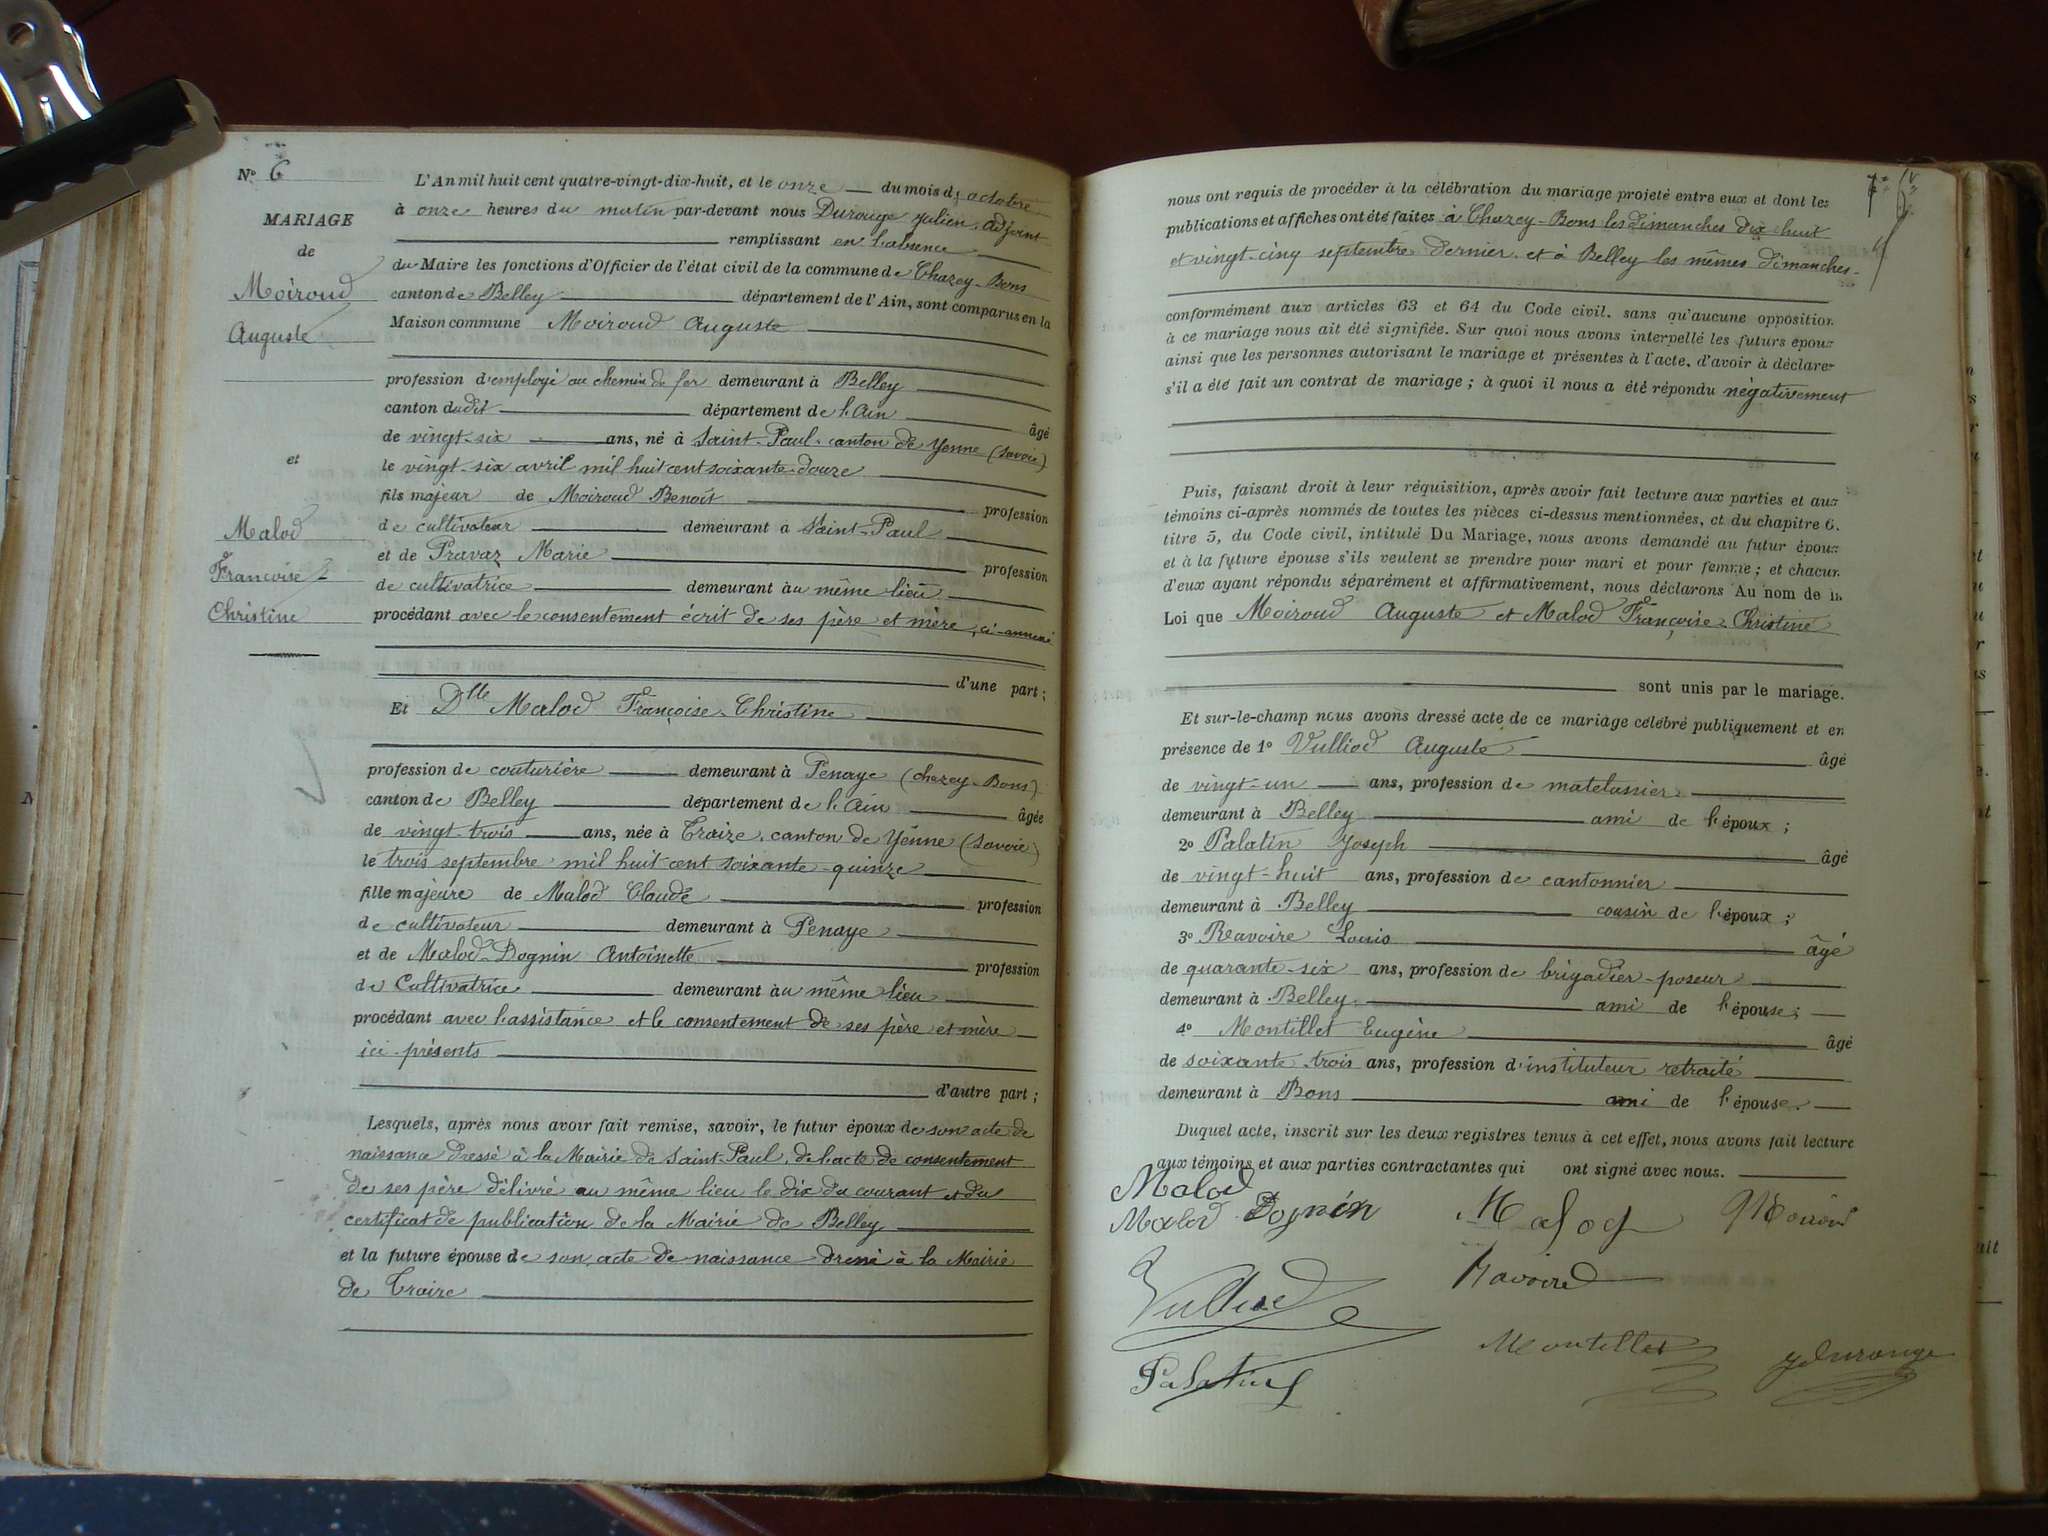 N° 6
MARIAGE
de
Moiroud
Auguste
et
Malod
Françoise
Christine
L'An mil huit cent quatre-vingt-dix-huit, et le onze du mois d'octobre
à onze heures du matin par-devant nous Durouge Julien, adjoint
remplissant en l'absence
du Maire les fonctions d'Officier de l'état civil de la commune de Chazey-Bons
canton de Belley département de l'Ain, sont comparus en la
Maison commune Moiroud Auguste
profession d'employé au chemin de fer demeurant à Belley
canton dudit département de l'Ain âgé
de vingt-six ans, né à Saint-Paul, canton de Yenne (Savoie)
le vingt-six avril mil huit cent soixante-douze
fils majeur de Moiroud Benoît profession
de cultivateur demeurant à Saint-Paul
et de Pravaz Marie profession
de cultivatrice demeurant au même lieu
procédant avec le consentement écrit de ses père et mère, ci-annexé
d'une part ;
Et Dlle Malod Françoise-Christine
profession de couturière demeurant à Penaye (Chazey-Bons)
canton de Belley département de l'Ain âgée
de vingt-trois ans, née à Traize, canton de Yenne (Savoie)
le trois septembre mil huit cent soixante-quinze
fille majeure de Malod Claude profession
de cultivateur demeurant à Penaye
et de Malod-Dognin Antoinette profession
de Cultivatrice demeurant au même lieu
procédant avec l'assistance et le consentement de ses père et mère
ici-présents
d'autre part ;
Lesquels, après nous avoir fait remise, savoir, le futur époux de son acte de
naissance dressé à la Mairie de Saint-Paul, de l'acte de consentement
de ses père délivré au même lieu le dix du courant et du
certificat de publication de la Mairie de Belley
et la future épouse de son acte de naissance dressé à la Mairie
de Traize
nous ont requis de procéder à la célébration du mariage projeté entre eux et dont les
publications et affiches ont été faites à Chazey-Bons les dimanches dix huit
et vingt-cinq septembre dernier et à Belley les mêmes dimanches
conformément aux articles 63 et 64 du Code civil, sans qu'aucune opposition
à ce mariage nous ait été signifiée. Sur quoi nous avons interpellé les futurs époux
ainsi que les personnes autorisant le mariage et présentes à l'acte, d'avoir à déclarer
s'il a été fait un contrat de mariage ; à quoi il nous a été répondu négativement
Puis, faisant droit à leur réquisition, après avoir fait lecture aux parties et aux
témoins ci-après nommés de toutes les pièces ci-dessus mentionnées, et du chapitre 6,
titre 5, du Code civil, intitulé Du Mariage, nous avons demandé au futur époux
et à la future épouse s'ils veulent se prendre pour mari et pour femme ; et chacun
d'eux ayant répondu séparément et affirmativement, nous déclarons Au nom de la
Loi que Moiroud Auguste et Malod Françoise-Christine
sont unis par le mariage.
Et sur-le-champ nous avons dressé acte de ce mariage célébré publiquement et en
présence de 1° Vulliod Auguste âgé
de vingt-un ans, profession de matelassier
demeurant à Belley ami de l'époux ;
2° Palatin Joseph âgé
de vingt-huit ans, profession de cantonnier
demeurant à Belley cousin de l'époux ;
3° Ravoire Louis âgé
de quarante-six ans, profession de brigadier-poseur
demeurant à Belley ami de l'épouse ;
4° Montillet Eugène âgé
de soixante-trois ans, profession d'instituteur retraité
demeurant à Bons ami de l'épouse.
Duquel acte, inscrit sur les deux registres tenus à cet effet, nous avons fait lecture
aux témoins et aux parties contractantes qui ont signé avec nous.
Malod
Malod Dognin Malod Moiroud
Vulliod Ravoire
Palatin Montillet J Durouge